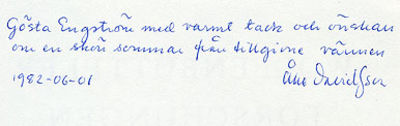 Gösta Engström med varmt tack och önskan
om en skön sommar från tillgivne vännen
1982-06-01 Åke Davidsson